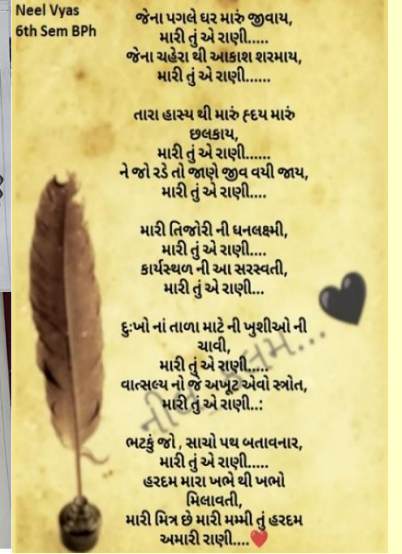 Neel Vyas
6th Sem BPh
જેના પગલે ઘર મારું જીવાય,
મારી તું એ રાણી.....
જેના ચહેરા થી આકાશ શરમાય,
મારી તું એ રાણી......
તારા હાસ્ય થી મારું હ્દય મારું
છલકાય,
મારી તું એ રાણી......
ને જો રડે તો જાણે જીવ વયી જાય,
મારી તું એ રાણી....
મારી તિજોરી ની ધનલક્ષ્મી,
મારી તું એ રાણી....
કાર્યસ્થળ ની આ સરસ્વતી,
મારી તું એ રાણી...
દુઃખો નાં તાળા માટે ની ખુશીઓ ની
ચાવી,
મારી તું એ રાણી.....
વાત્સલ્ય નો જે અખૂટ એવો સ્ત્રોત,
મારી તું એ રાણી..:
નીલ કલમ...
ભટકું જો , સાચો પથ બતાવનાર,
મારી તું એ રાણી.....
હરદમ મારા ખભે થી ખભો
મિલાવતી,
મારી મિત્ર છે મારી મમ્મી તું હરદમ
અમારી રાણી....❤️